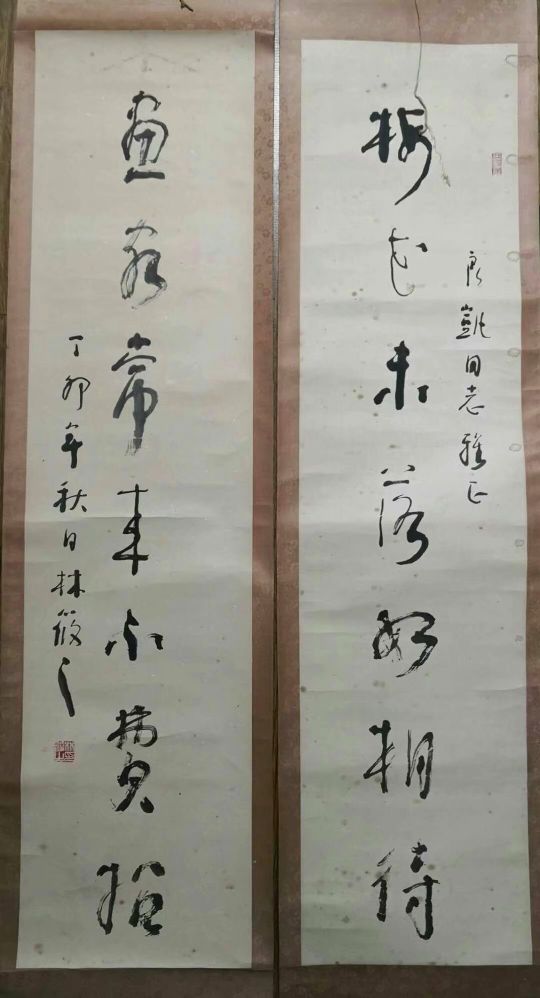 良凱同志雅正
梅花未落如相待
畫客常来不費招
丁卯年秋日林筱之